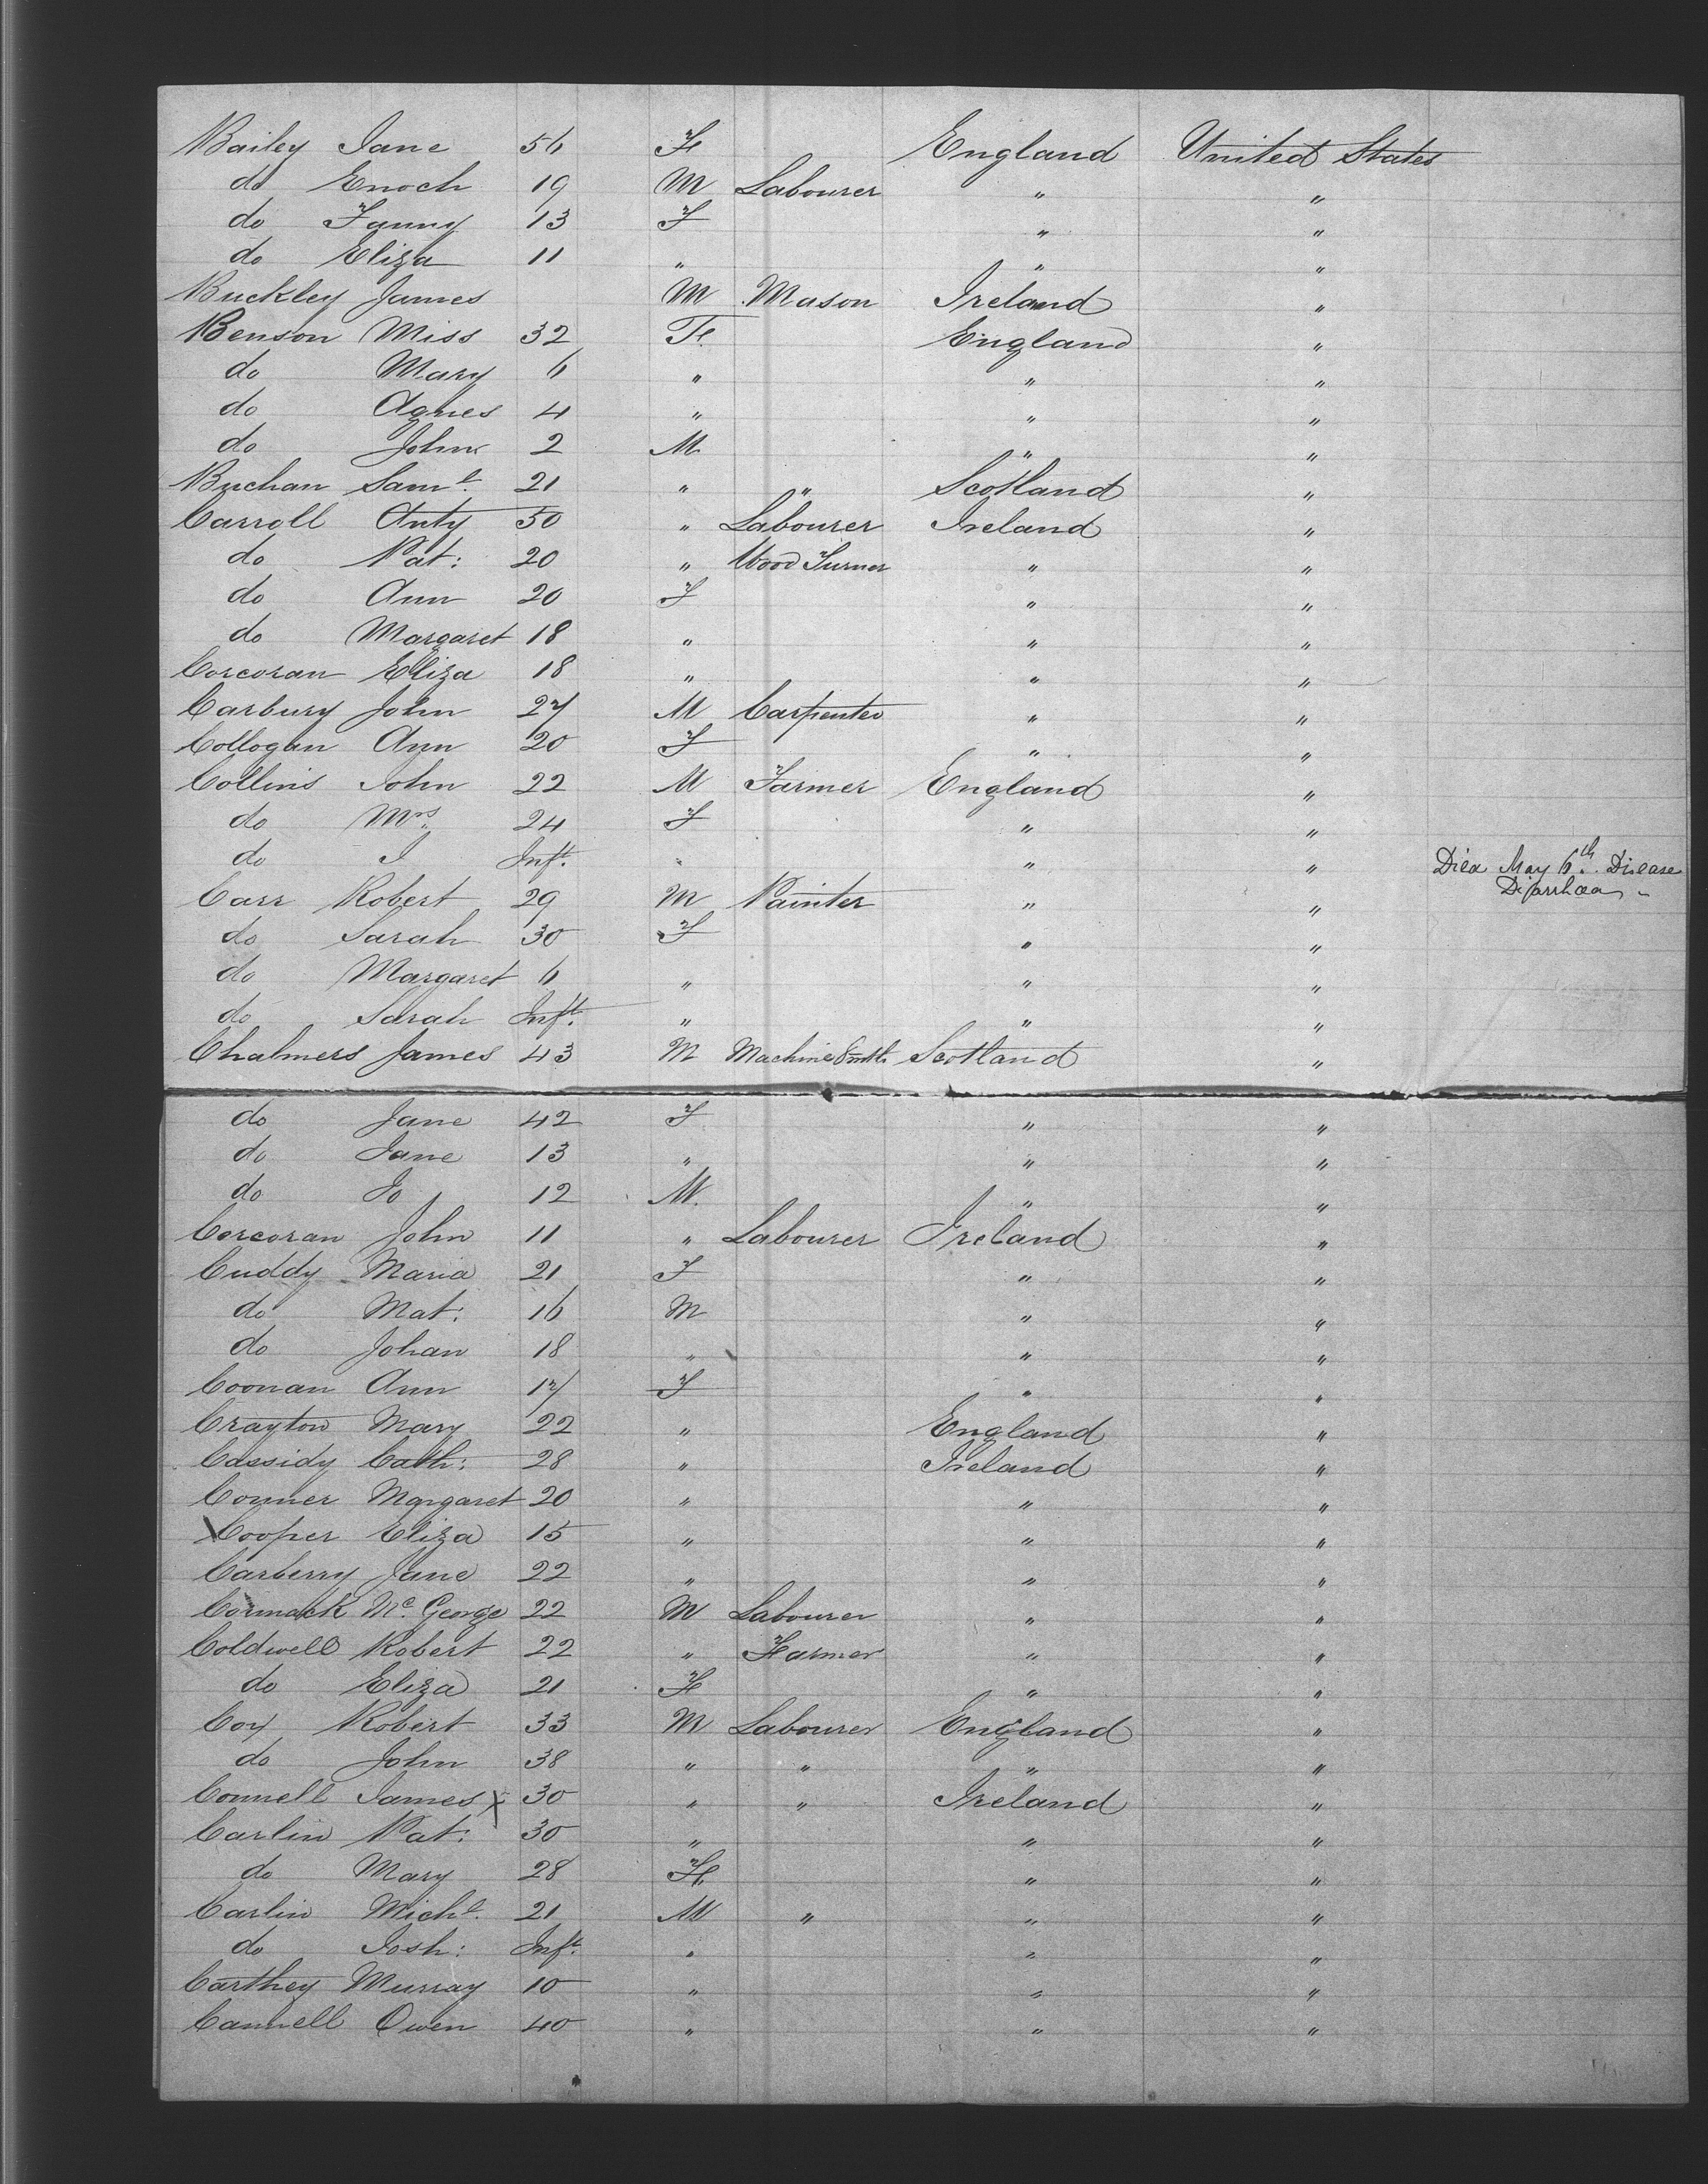 Bailey Jane 56 F England United States
do Enoch 19 M Labourer " "
do Fanny 13 F " "
do Eliza 11 " " "
Buckley James M Mason Ireland "
Benson Miss 32 F England "
do Mary 6 " " "
do Agnes 4 " " "
do John 2 M " "
Buchan Saml. 21 " " Scotland "
Carroll Anty 50 " Labourer Ireland "
do Pat: 20 " Wood Turner " "
do Ann 20 F " "
do Margaret 18 " " "
Corcoran Eliza 18 " " "
Carbury John 27 M Carpenter " "
Collogan Ann 20 F " "
Collins John 22 M Farmer England "
do Mrs 24 F " "
do I Inft. " " " Died May 6th. Disease
Diarrhoea
Carr Robert 29 M Painter " "
do Sarah 30 F " "
do Margaret 6 " " "
do Sarah Inft. " " "
Chalmers James 43 M Machine Smith Scotland "
do Jane 42 F " "
do Jane 13 " " "
do Jo 12 M. " "
Corcoran John 11 " Labourer Ireland "
Cuddy Maria 21 F " "
do Mat: 16 M " "
do Johan 18 " " "
Coonan Ann 17 F " "
Crayton Mary 22 " England "
Cassidy Cath: 28 " Ireland "
Conner Margaret 20 " " "
Cooper Eliza 15 " " "
Carberry Jane 22 " " "
Cormack Mc. George 22 M Labourer " "
Coldwell Robert 22 " Farmer " "
do Eliza 21 F " "
Cox Robert 33 M Labourer England "
do John 38 " " " "
Connell James X 30 " " Ireland "
Carlin Pat: 30 " " "
do Mary 28 F " "
Carlin Michl. 21 M " " "
do Josh: Inft. " " "
Carthey Murray 10 " " "
Cannell Owen 40 " " "